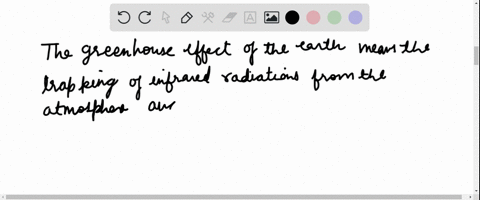 The greenhouse effect of the earth mean the
trapping of infrared radiations from the
atmosphere